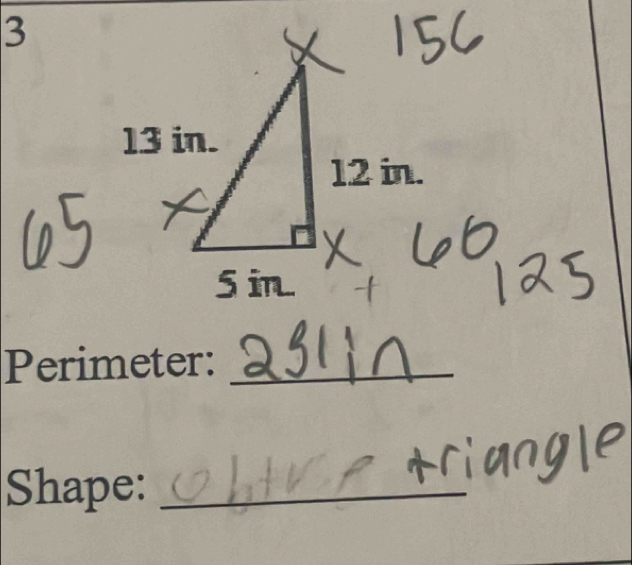 3
x 156
13 in.
12 in.
65 x
x 60
5 in. + 125
Perimeter: 281 in
Shape: obtuse triangle